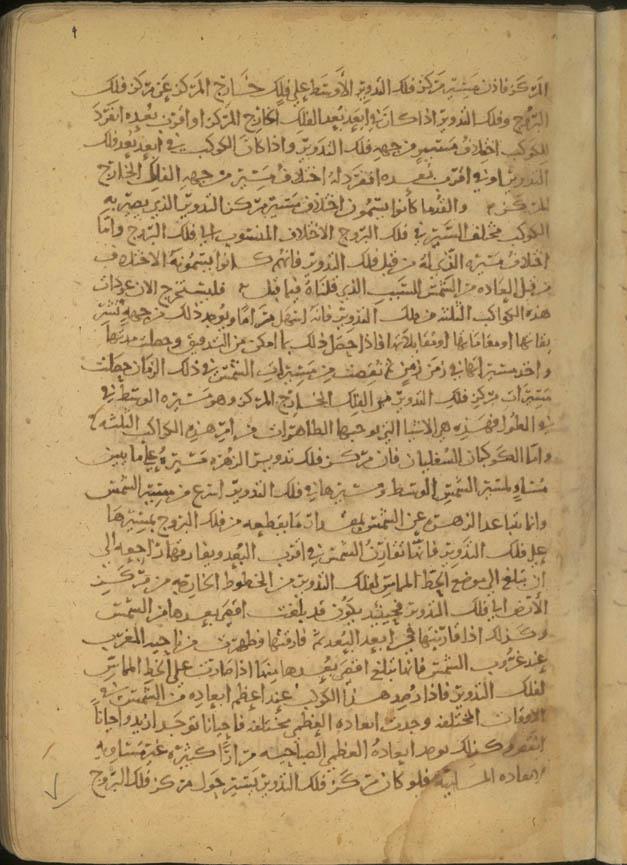 المركز فاذن مسير مركز فلك التدوير الأوسط على فلك خارج المركز عن مركز فلك
البروج وفلك التدوير اذا كان في ابعد بعد الفلك الخارج المركز او اقرب بعده انفرد
للكوكب اختلاف مسيره من جهة فلك التدوير واذا كان الكوكب في ابعد بعد فلك
التدوير او في اقرب بعده انفرد له اختلاف مسير من جهة الفلك الخارج
المركز والقدما كانوا يسمون اختلاف مسير مركز التدوير الذي يصير به
الكوكب مختلف السير في فلك البروج الاختلاف المنسوب الى فلك البروج واما
اختلاف مسيره الذي له من قبل فلك التدوير فانهم كانوا يسمونه الاختلاف
من قبل العاده من الشمس للسبب الذي قلناه فيما قبل فليستخرج الان عودات
هذه الكواكب الثلثه من فلك التدوير فانه اسهل مراما ويوجد ذلك من جهة
مقاماتها او مقابلاتها فاذا حصل ذلك بما امكن من التدقيق وحصلت مدتها
واخذ مسير في زمن زمن ثم نقصت من مسيرات الشمس في ذلك الزمان حصلت
مسيرات مركز فلك التدوير في الفلك الخارج المركز وهو مسيره الوسط في
في الطول فهذه هي الاشيا التي يوجبها الظاهرات من امر هذه الكواكب الثلثه
واما الكوكبان السفليان فان مركز فلك تدوير الزهره مسيره على ما يبين
مساو لمسير الشمس الوسط ومسيرها في فلك التدوير اسرع من مسير الشمس
وانما تباعد الزهره عن الشمس بمقدار ما يقطعه من فلك البروج بمسيرها
على فلك التدوير فانها تقارن الشمس في اقرب البعد ويفارقها راجعه الى
ان تبلغ الى موضع الخط المماس لفلك التدوير من الخطوط الخارجه من مركز
الارض الى فلك التدوير فحينئذ يكون قد بلغت اقصى بعدها من الشمس
وكذلك اذا قارنتها في ابعد البعد ثم فارقتها وظهرت من ناحيه المغرب
عند غروب الشمس فانها تبلغ اقصى بعدها منها اذا صارت على الخط المماس
لفلك التدوير فاذا رصد هذا الكوكب عند اعظم ابعاده من الشمس في
الاوقات المختلفه وجدت ابعاده العظمى مختلفه فاحيانا توجد ازيد واحيانا
انقص وكذلك يوجد ابعاده العظمى الصباحيه مرارا كثيره غير مساويه
لابعاده المسائيه فلو كان مركز فلك التدوير يسير حول مركز فلك البروج